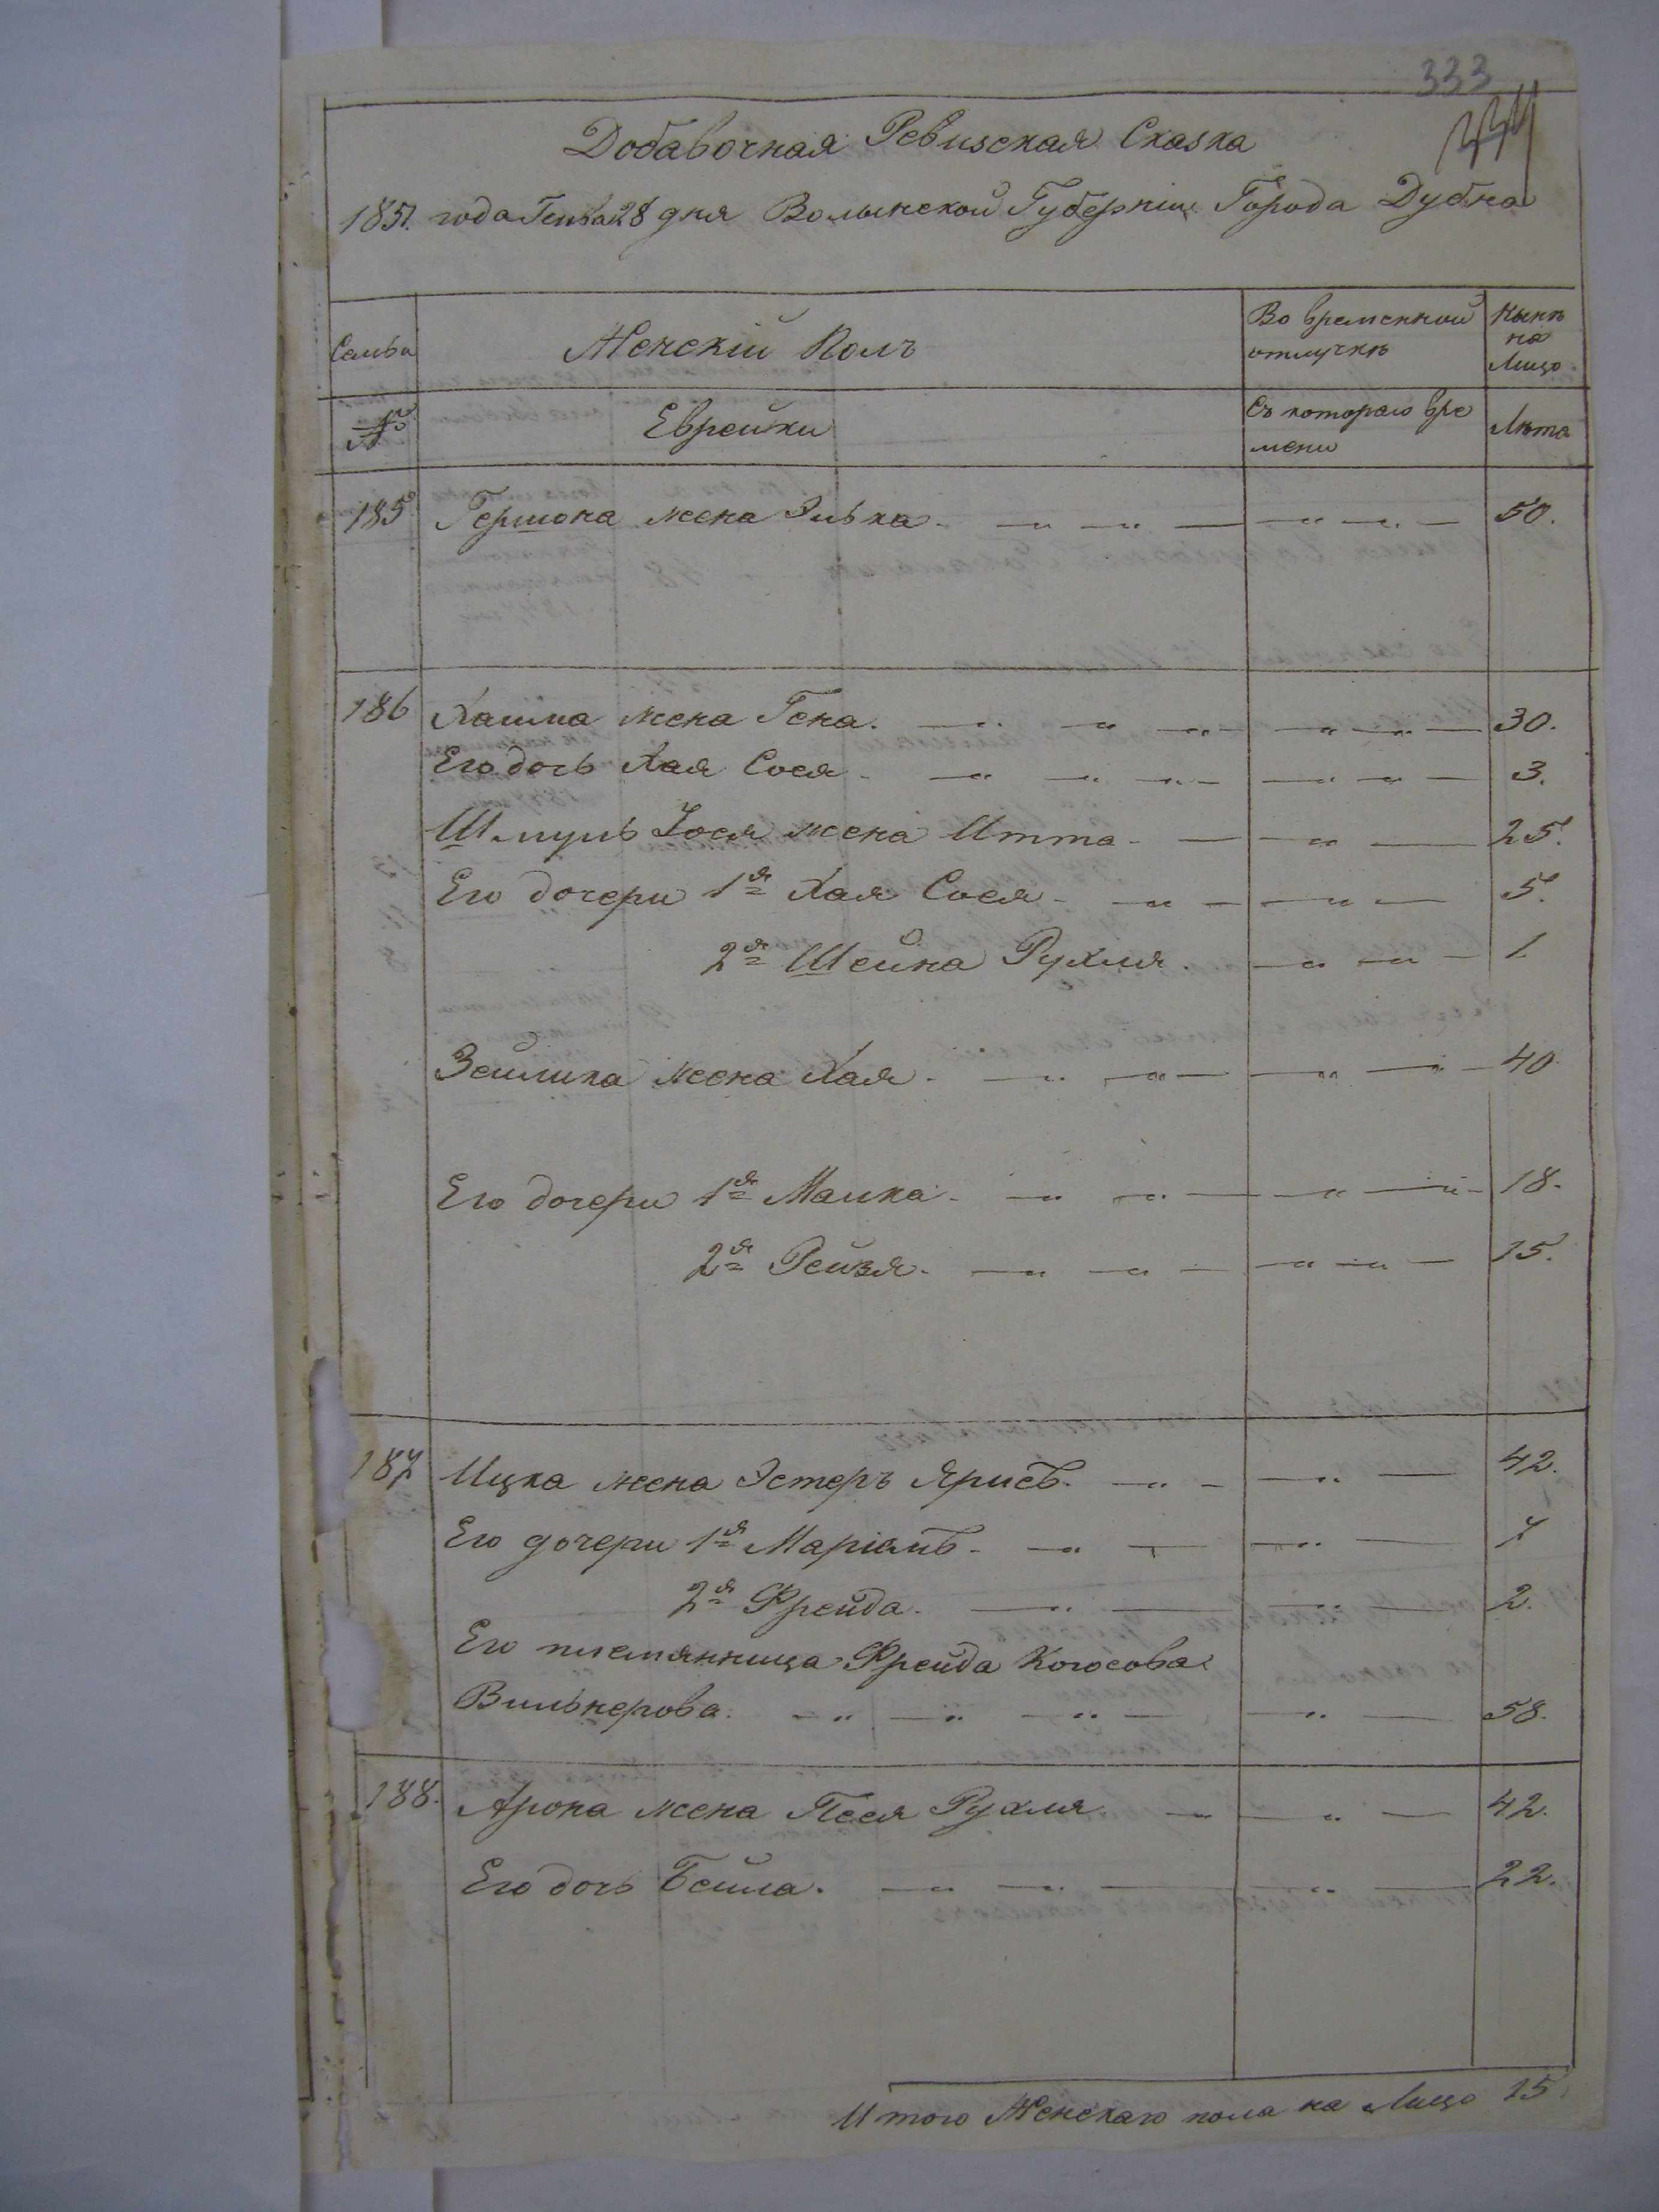 333
334
Добавочная Ревизская Сказка
1851. года Генва 28 дня Волынской Губерніи Города Дубна
Семьи
Женскій Полъ
Во временной отлучкѣ
Нынѣ на Лицо
№
Еврейки
Съ котораго вре
мени
Лѣта
185 Гершона жена Зивка. 50.
186 Хаима жена Гена. 30.
Его дочь Хая Сося 3.
Шмуль Іося жена Итта 25.
Его дочери 1я Хая Сося 5.
2я Шейна Рухля. 1
Зейлика жена Хая. 40
Его дочери 1я Малка. 18.
2я Рейзя. 15.
187 Ицка жена Эстеръ 42.
Его дочери 1я Маріамъ. 7
2я Фрейда. 2.
Его племянница Фрейда
Вильнерова. 58.
188. Арона жена Песя Рухля 42.
Его дочь Бейла. 22.
Итого Женскаго пола на Лицо 15.